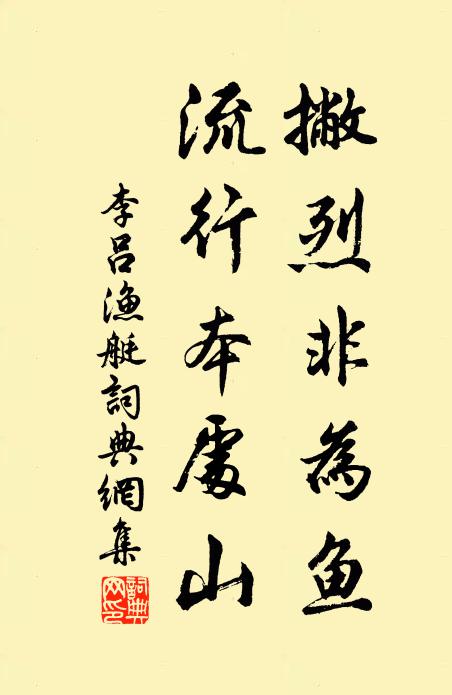 撇烈非為魚
流行本處山
李呂漁艇詞典網集
詞典網印